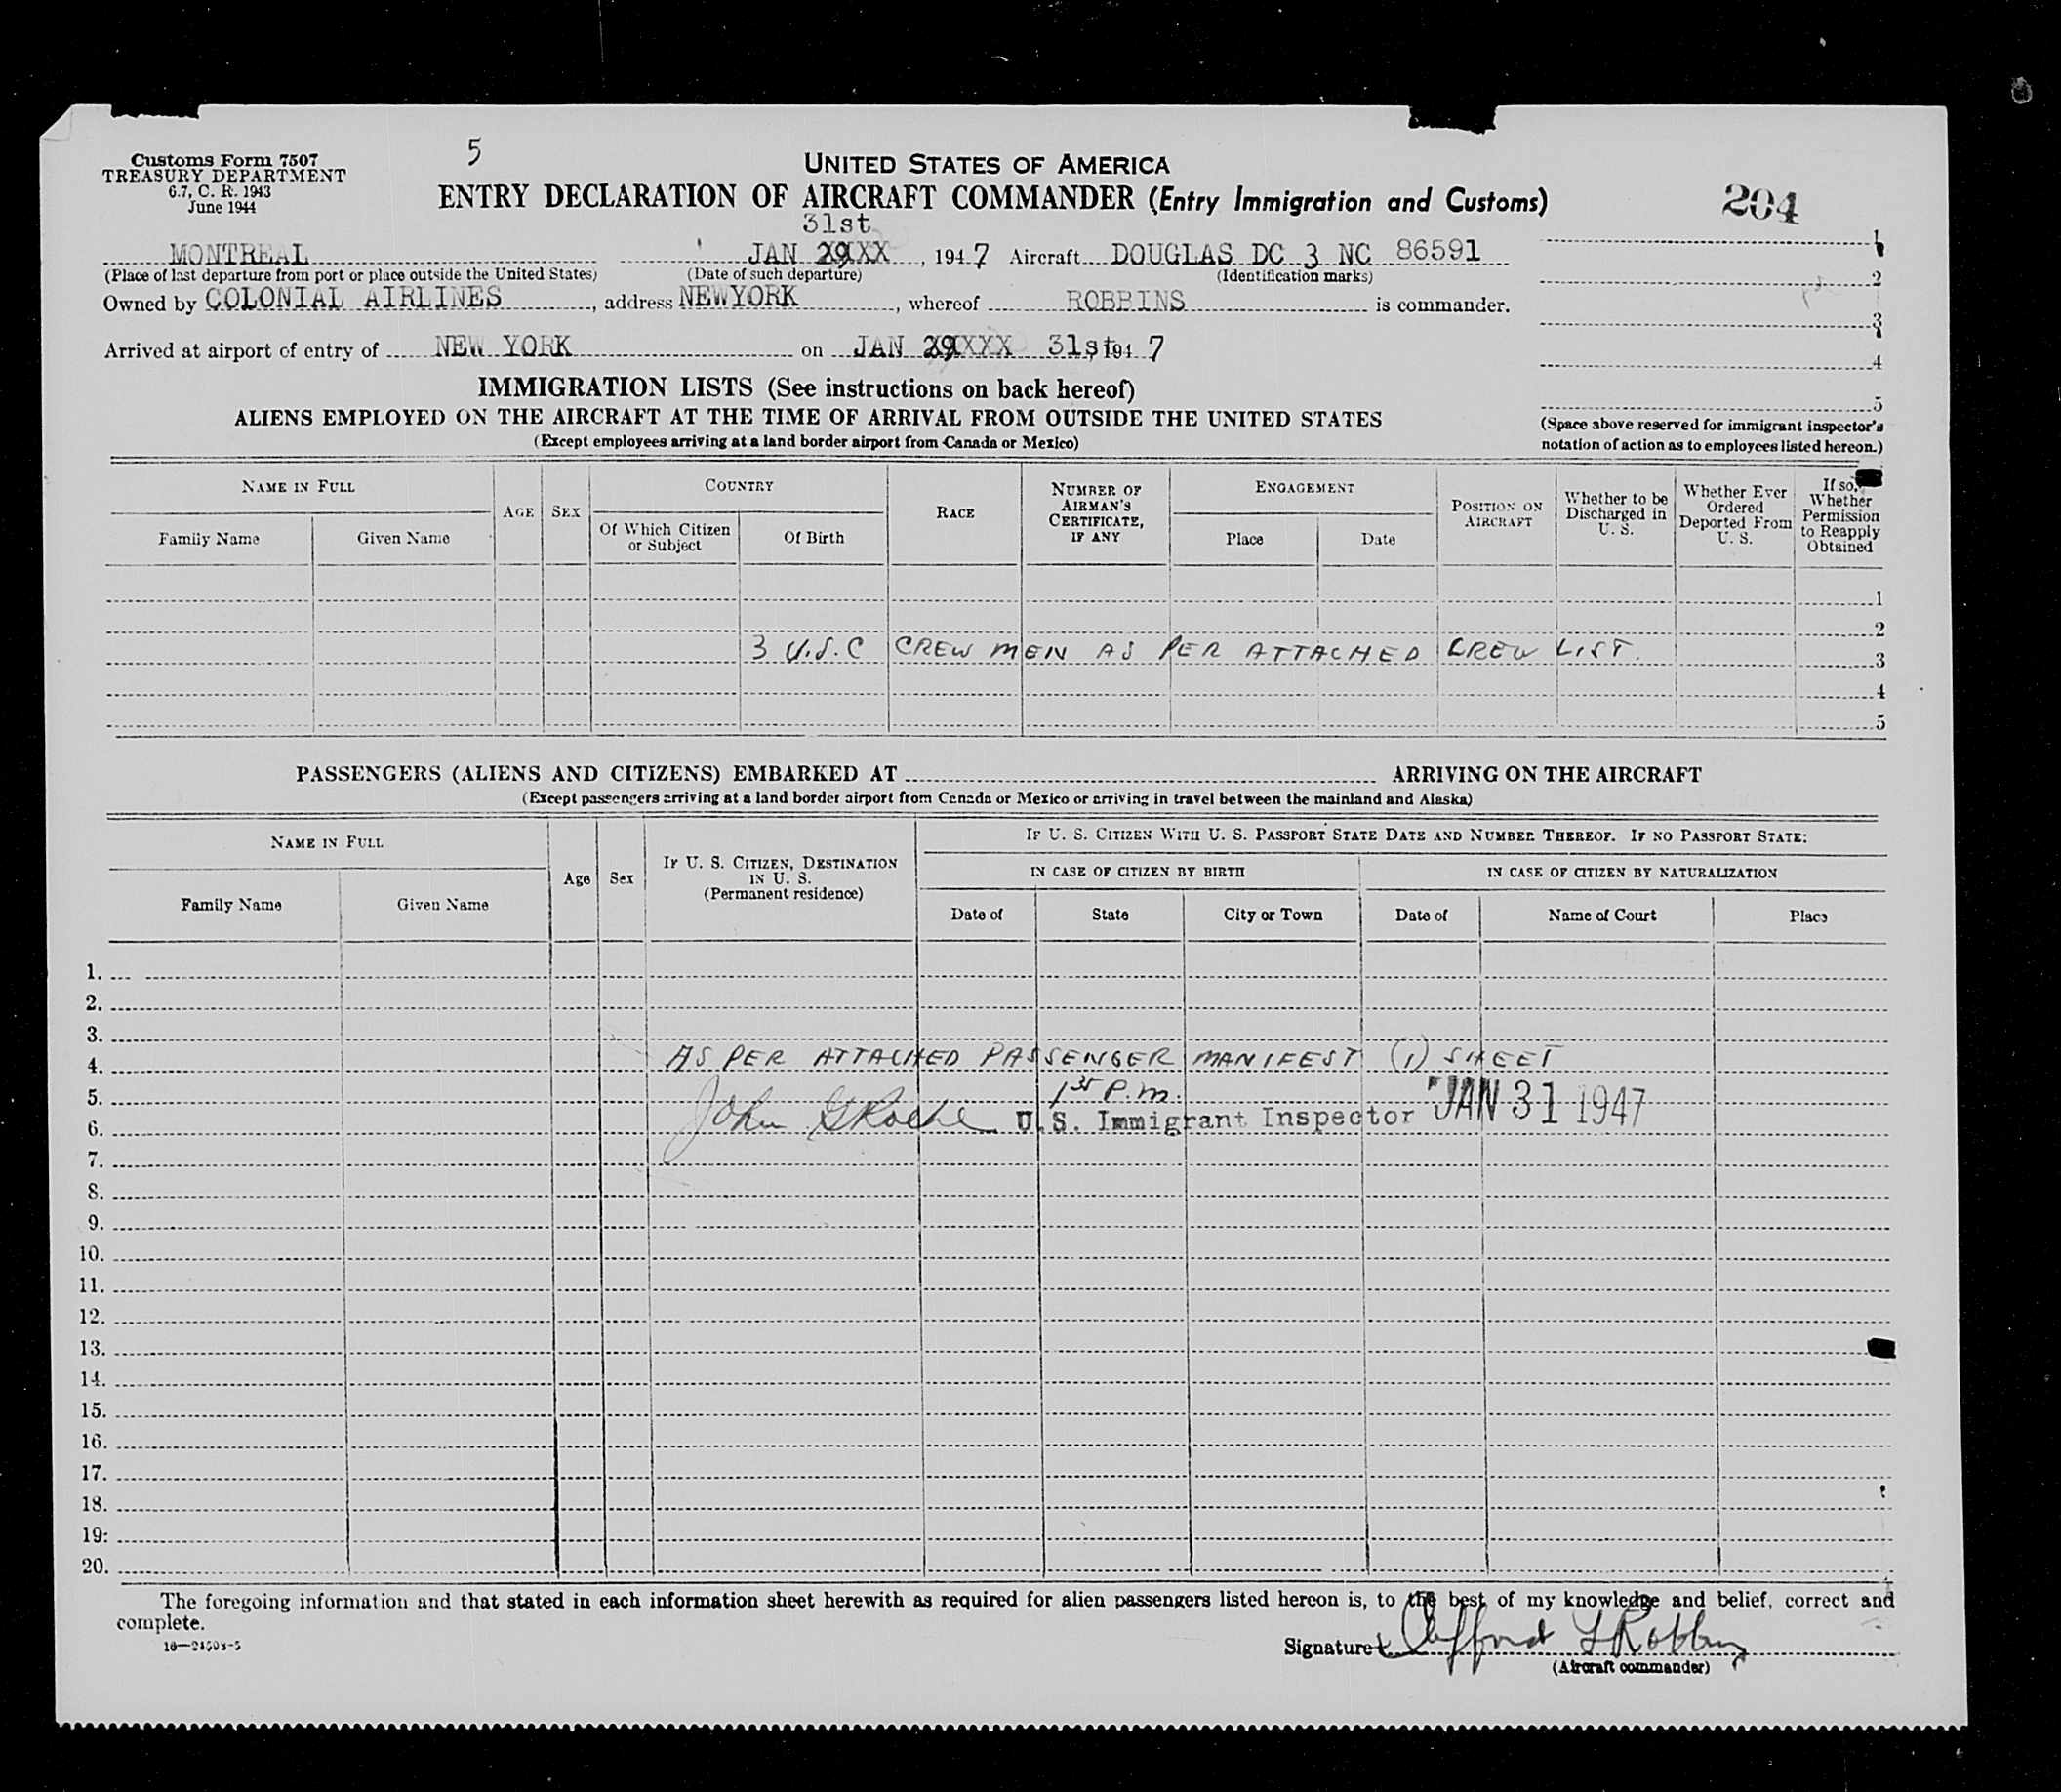 Customs Form 7507
TREASURY DEPARTMENT
6.7, C. R. 1943
June 1944
5
UNITED STATES OF AMERICA
ENTRY DECLARATION OF AIRCRAFT COMMANDER (Entry Immigration and Customs)
204
31st
MONTREAL JAN 29XXX, 1947 Aircraft DOUGLAS DC 3 NC 86591
(Place of last departure from port or place outside the United States) (Date of such departure) (Identification marks)
Owned by COLONIAL AIRLINES, address NEWYORK, whereof ROBBINS is commander.
Arrived at airport of entry of NEW YORK on JAN 29XXXX 31st, 1947
1
2
3
4
5
(Space above reserved for immigrant inspector's
notation of action as to employees listed hereon.)
IMMIGRATION LISTS (See instructions on back hereof)
ALIENS EMPLOYED ON THE AIRCRAFT AT THE TIME OF ARRIVAL FROM OUTSIDE THE UNITED STATES
(Except employees arriving at a land border airport from Canada or Mexico)
NAME IN FULL
Family Name Given Name
AGE SEX
COUNTRY
Of Which Citizen or Subject Of Birth
RACE
NUMBER OF AIRMAN'S CERTIFICATE, IF ANY
ENGAGEMENT
Place Date
POSITION ON AIRCRAFT
Whether to be Discharged in U. S.
Whether Ever Ordered Deported From U. S.
If so, Whether Permission to Reapply Obtained
1
2
3 U.S.C CREW MEN AS PER ATTACHED CREW LIST. 3
4
5
PASSENGERS (ALIENS AND CITIZENS) EMBARKED AT ARRIVING ON THE AIRCRAFT
(Except passengers arriving at a land border airport from Canada or Mexico or arriving in travel between the mainland and Alaska)
NAME IN FULL
Family Name Given Name
Age Sex
IF U. S. CITIZEN, DESTINATION IN U. S.
(Permanent residence)
IF U. S. CITIZEN WITH U. S. PASSPORT STATE DATE AND NUMBER THEREOF. IF NO PASSPORT STATE:
IN CASE OF CITIZEN BY BIRTH IN CASE OF CITIZEN BY NATURALIZATION
Date of State City or Town Date of Name of Court Place
1.
2.
3.
4. AS PER ATTACHED PASSENGER MANIFEST (1) SHEET
5. 135 P.M.
6. John G Roche U.S. Immigrant Inspector JAN 31 1947
7.
8.
9.
10.
11.
12.
13.
14.
15.
16.
17.
18.
19:
20.
The foregoing information and that stated in each information sheet herewith as required for alien passengers listed hereon is, to the best of my knowledge and belief, correct and
complete.
Signature Clifford L Robbins
(Aircraft commander)